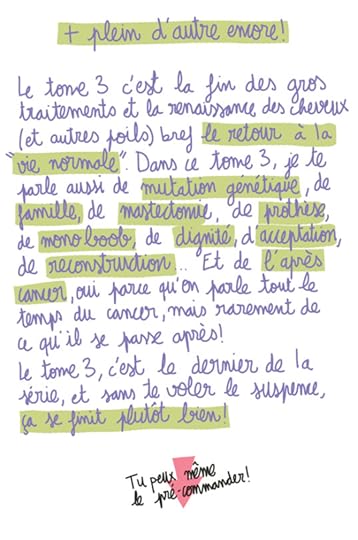 + plein d'autre encore!
Le tome 3 c'est la fin des gros
traitements et la renaissance des cheveux
(et autres poils) bref le retour à la
"vie normale". Dans ce tome 3, je te
parle aussi de mutation génétique, de
famille, de mastectomie, de prothèse,
de monoboob, de dignité, d'acceptation,
de reconstruction... Et de l'après
cancer, oui parce qu'on parle tout le
temps du cancer, mais rarement de
ce qu'il se passe après!
Le tome 3, c'est le dernier de la
série, et sans te voler le suspense,
ça se finit plutôt bien!
Tu peux même
le pré-commander!